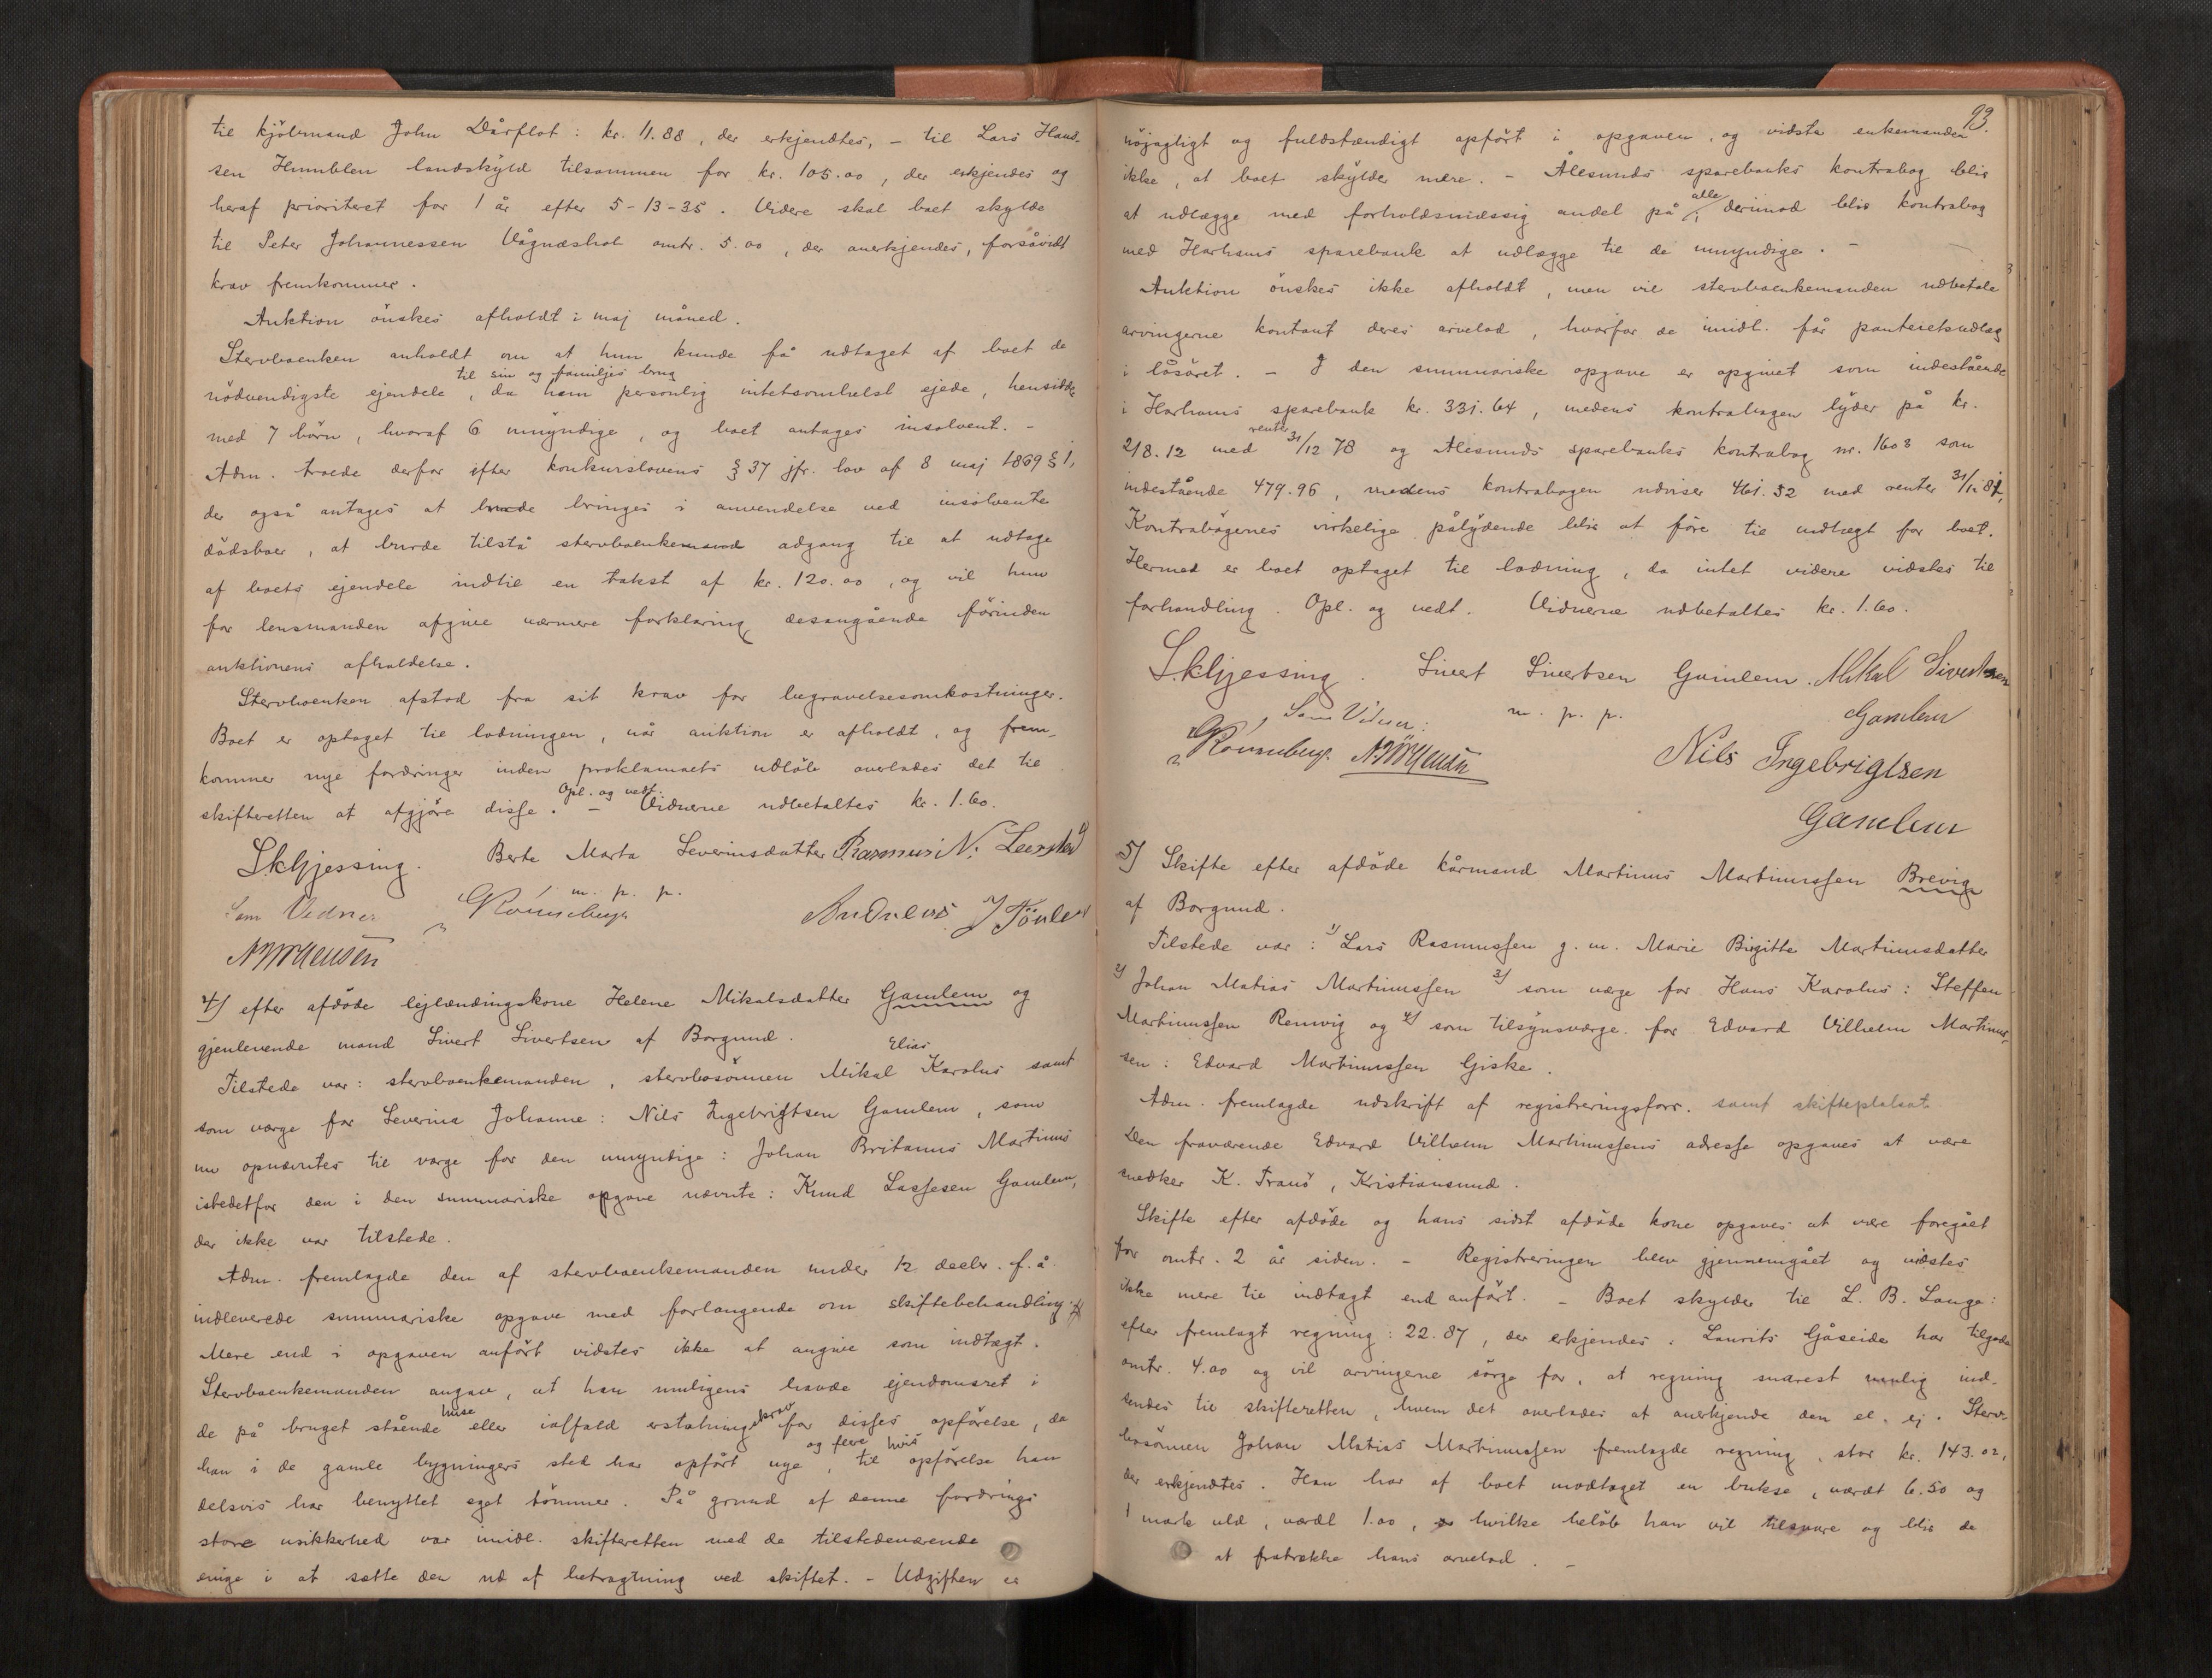 til kjöbmand John Dårflot: kr. 11.88, der erkjendtes, - til Lars Hand-
sen Humblen landskyld tilsammen for kr. 105.00, der erkjendes og
heraf prioritert for 1 år efter 5-13-35. Videre skal boet skylde
til Peter Johannessen Vågnæshol omtr. 5.00, der anerkjendes, forsåvidt
krav fremkommer.
Auktion önskes afholdt i maj måned.
Stervboenken anholdt om at hun kunde få udtaget af boet de
nödvendigste ejendele til sin og familjes brug, da hun personlig intetsomhelst ejede, hensidde
med 7 börn, hvoraf 6 umyndige, og boet antages insolvent. -
Adm. troede derfor efter konkurslovens § 37 jfr. lov af 8 maj 1869 § 1,
der også antages at burde bringes i anvendelse ved insolvente
dödsboer, at burde tilstå stervboenken adgang til at udtage
af boets ejendele indtil en takst af kr. 120.00, og vil hun
for lensmanden afgive nærmere forklaring desangående förinden
auktionens afholdelse.
Stervboenken afstod fra sit krav for begravelsesomkostninger.
Boet er optaget til lodningen, når auktion er afholdt, og frem-
kommer nye fordringer inden proklamaets udlöb overlades det til
skifteretten at afgjöre disse. Opl. og vedt. - Vidnerne udbetaltes kr. 1.60.
Skhjessing. Berte Marta Severinsdatter Rasmus N.
m. p. p.
Som Vidner Rönneberg Andreas J
N Jörgensen
4) efter afdöde lejlændingskone Helene Mikalsdatter Gamlem og
gjenlevende mand Sivert Sivertsen af Borgund.
Tilstede var: stervboenkemanden, stervbosönnen Mikal Elias Karolus samt
som værge for Severina Johanne: Nils Ingebrigtsen Gamlem, som
nu opnævntes til værge for den umyndige: Johan Britanus Martinus
istedetfor den i den summariske opgave nævnte: Knud Lassesen Gamlem,
der ikke var tilstede.
Adm. fremlagde den af stervboenkemanden under 12 decbr. f. å.
indleverede summariske opgave med forlangende om skiftebehandling.
Mere end i opgaven anfört vidstes ikke at angive som indtægt.
Stervboenkemanden angav, at han muligens havde ejendomsret i
de på bruget stående huse eller ialfald erstatningskrav for disses opförelse, da
han i de gamle bygningers sted har opfört nye og flere, til hvis opförelse han
delsvis har benyttet eget tömmer. På grund af denne fordrings
store usikkerhed var imidl. skifteretten med de tilstedeværende
enige i at sætte den ud af betragtning ved skiftet. - Udgiften er
93.
nöjagtigt og fuldstændigt opfört i opgaven, og vidste enkemanden
ikke, at boet skylder mere. - Ålesunds sparebanks kontrabog blir
at udlægge med forholdsmæssig andel på alle, derimod blir kontrabog
med Harhams sparebank at udlægge til de umyndige. -
Auktion önskes ikke afholdt, men vil stervboenkemanden udbetale
arvingerne kontant deres arvelod, hvorfor de imidl. får panteretsudlæg
i lösöret. - I den summariske opgave er opgivet som indestående
i Harhams sparebank kr. 331.64, medens kontrabogen lyder på kr.
218.12 med renter 31/12 78 og Ålesunds sparebanks kontrabog nr. 1608 som
indestående 479.96, medens kontrabogen udviser 461.52 med renter 31/12 81,
Kontrabögernes virkelige pålydende blir at före til indtægt for boet.
Hermed er boet optaget til lodning, da intet videre vidstes til
forhandling. Opl. og vedt. Vidnerne udbetaltes kr. 1.60.
Skhjessing. Sivert Sivertsen Gamlem. Mikal Sivertsen
Som Vidner: m. p. p. Gamlem
Rönneberg. N Jörgensen Nils Ingebrigtsen
Gamlem
5) Skifte efter afdöde kårmand Martinus Martinussen Brevig
af Borgund.
Tilstede var: 1) Lars Rasmussen g. m. Marie Birgitte Martinusdatter
2) Johan Matias Martinussen 3) som værge for Hans Karolus: Steffen
Martinussen Remvig og 4) som tilsynsværge for Edvard Vilhelm Martinus-
sen: Edvard Martinussen Giske.
Adm. fremlagde udskrift af registreringsforr. samt skifteplakat
Den fraværende Edvard Vilhelm Martinussens adresse opgaves at være
snedker K. Tranö, Kristiansund.
Skifte efter afdöde og hans sidst afdöde kone opgaves at være foregået
for omtr. 2 år siden. - Registreringen blev gjennemgået og vidstes
ikke mere til indtægt end anfört. - Boet skylder til L. B. Lange:
efter fremlagt regning: 22.87, der erkjendes. Laurits Gåseide har tilgode
omtr. 4.00 og vil arvingerne sörge for, at regning snarest mulig ind-
sendes til skifteretten, hvem det overlades at anerkjende den el. ej. Sterv-
bosönnen Johan Matias Martinussen fremlagde regning, stor kr. 143.02,
der erkjendtes. Han har af boet modtaget en bukse, værdt 6.50 og
1 mark uld, værdt 1.00, hvilke belöb han vil tilsvare og blir de
at fratrække hans arvelod. -